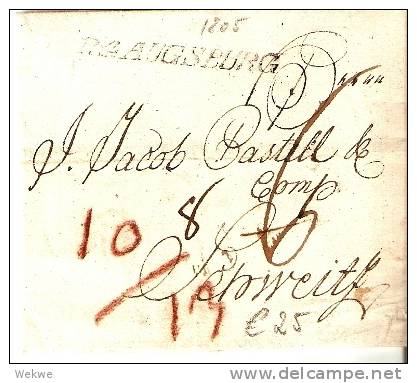 1805
R.4.AUGSBURG
J. Jacob Castell &
Comp.
6
10
8
Schweitz
€ 25
Wekwe
www.delcampe.net